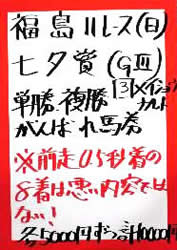 福島11レース(日)
七夕賞(GⅢ)
単勝複勝
がんばれ馬券
※前走0.5秒差の
8着は悪い内容では
ない！
各5000円ずつ計10000円